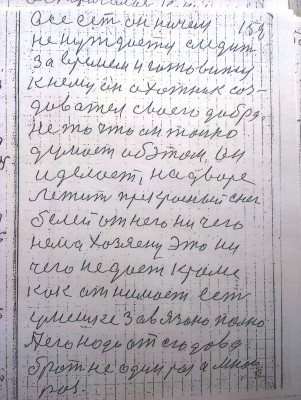 все сет он ничем 153
не нуждаетц следит
за времем и готовитц
к нему он охотник соз-
дователь своего добра,
не то что он только
думоет об этом, он
и делоет, на дворе
летит прекрасный снег
белей от него ни чего
нема хозяену это ни
чего не доет кроме
как отнимоет есть
уже завязоно полно
его нодо от сгодовд
брот не один роз а мног
роз